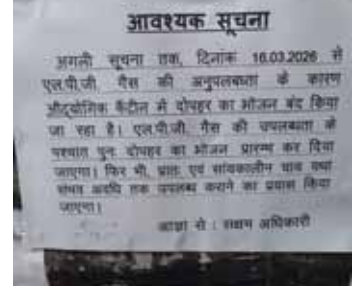 आवश्यक सूचना
अगली सूचना तक, दिनांक 16.03.2026 से
एल.पी.जी. गैस की अनुपलब्धता के कारण
औद्योगिक कैंटीन में दोपहर का भोजन बंद किया
जा रहा है। एल.पी.जी. गैस की उपलब्धता के
पश्चात पुनः दोपहर का भोजन प्रारम्भ कर दिया
जाएगा। फिर भी, प्रातः एवं सांयकालीन चाय यथा
संभव अवधि तक उपलब्ध कराने का प्रयास किया
जाएगा।
आज्ञा से : सक्षम अधिकारी